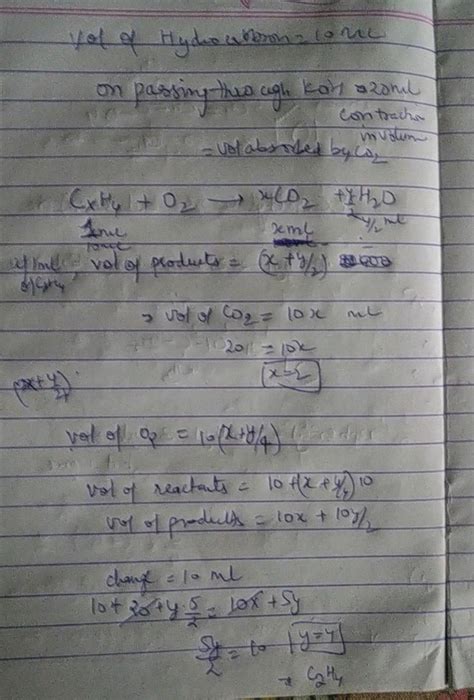 Vol of Hydrocarbon = 10 ml
on passing through KOH → 20ml
contraction
in volume
= vol absorbed by CO2
CxHy + O2 → xCO2 + y/2 H2O
1ml x ml y/2 ml
10ml
vol of products = (x + y/2)
⇒ vol of CO2 = 10x ml
20 = 10x
x=2
(x+y/4)
vol of O2 = 10(x+y/4)
vol of reactants = 10+(x + y/4)10
vol of products = 10x + 10y/2
change = 10 ml
10+ 20+y 5/2 = 10x +5y
5y/2 = 10 y=4
⇒ C2H4